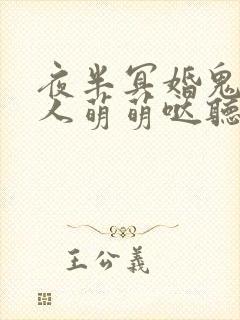 夜半冥婚鬼
人萌萌哒聽
王公義